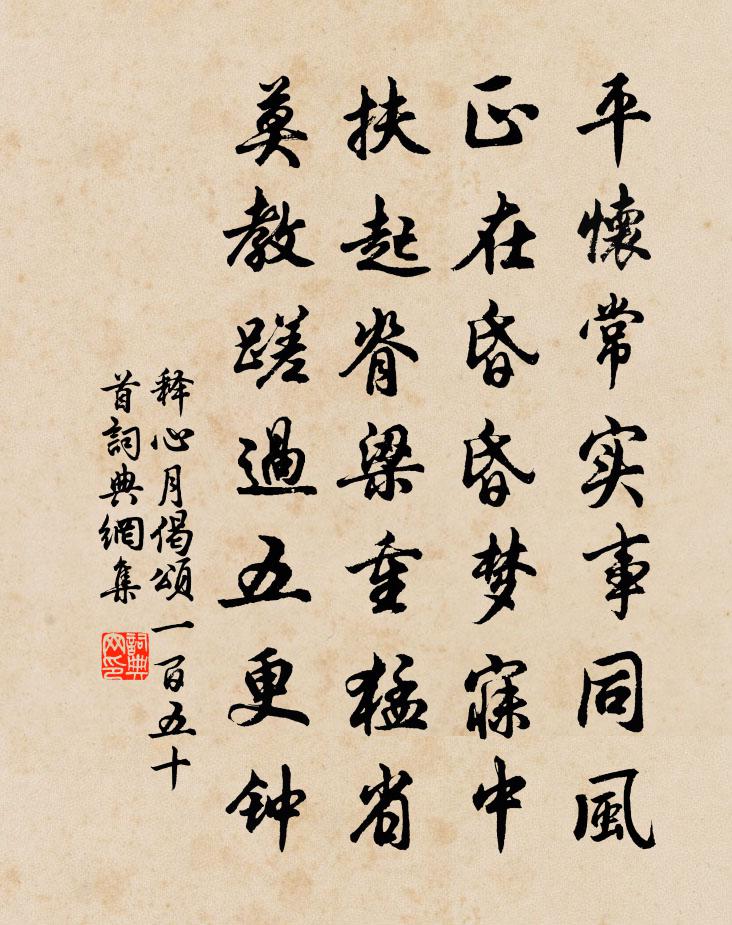 平懷常实事同風
正在昏昏梦寐中
扶起脊梁重猛省
莫教蹉過五更钟
释心月偈頌一百五十
首詞典網集
詞典
网印